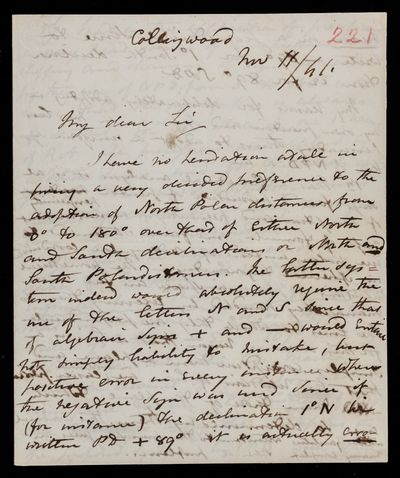 Collingwood
221
Nov 11/41.
My dear Sir
I have no hesitation at all in
giving a very decided preference to the
adoption of North Polar distances from
0° to 180° over that of Either North
and South declinations or North and
South Polar distances. The latter sys=
tem indeed would absolutely require the
use of the letters N and S since that
of algebraic signs + and – would Entail
not simply liability to mistake, but
positive error in every where
the negative sign was used since if
(for instance) the declination 1° N be
written PD + 89° it is actually erro